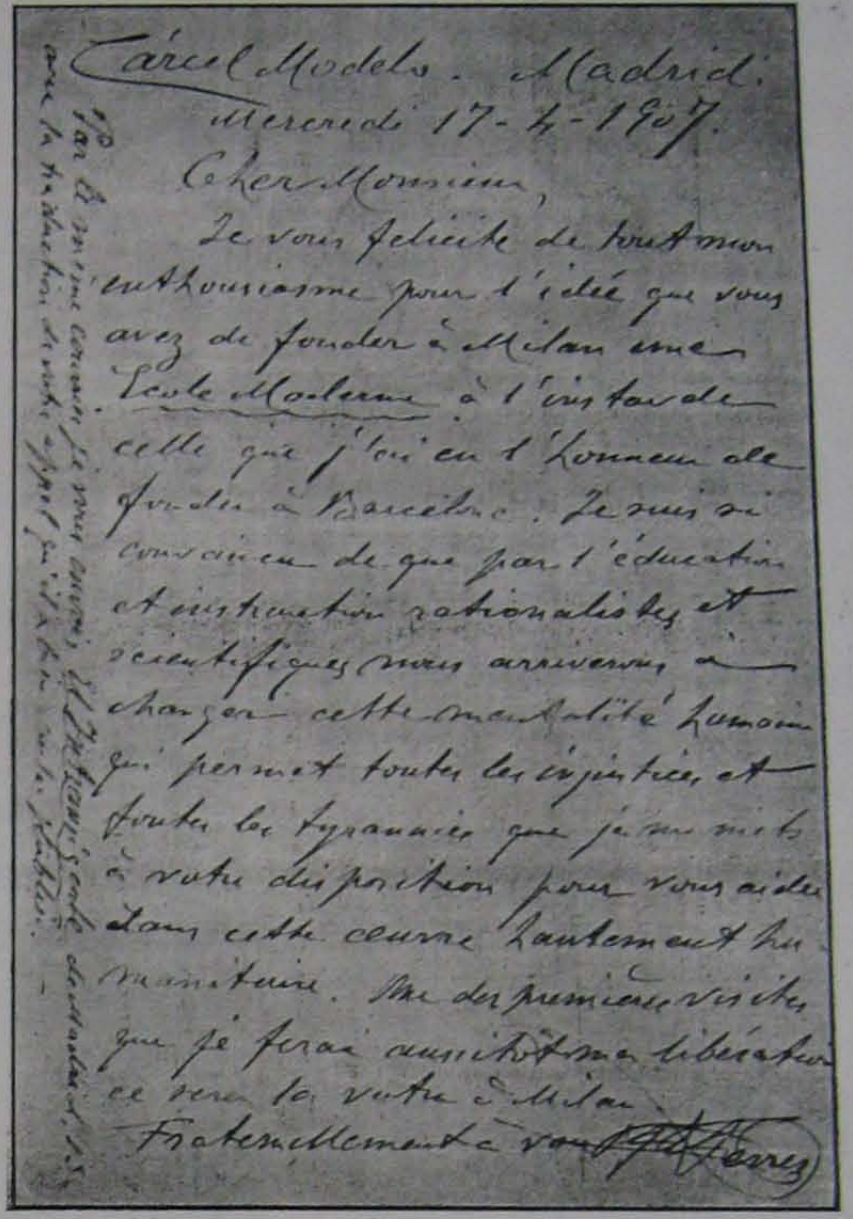 Cárcel Modelo. Madrid.
Mercredi 17-4-1907.
Cher Monsieur,
Je vous felicite de tout mon
enthousiasme pour l'idée que vous
avez de fonder à Milan une
Ecole Moderne à l'instar de
celle que j'ai eu l'honneur de
fonder à Barcelone. Je suis si
convaincu de que par l'éducation
et instruction rationalistes et
scientifiques nous arriverons à
changer cette mentalité humaine
qui permet toutes les injustices et
toutes les tyrannies que je me mets
à votre disposition pour vous aider
dans cette œuvre hautement hu-
manitaire. Une des premières visites
que je ferai aussitôt ma libération
ce sera la votre à Milan
Fraternellement à vous F. Ferrer
Par le même courrier je vous envois El Intransigente de Madrid
avec la traduction de votre appel qu'il a bien voulu publier.